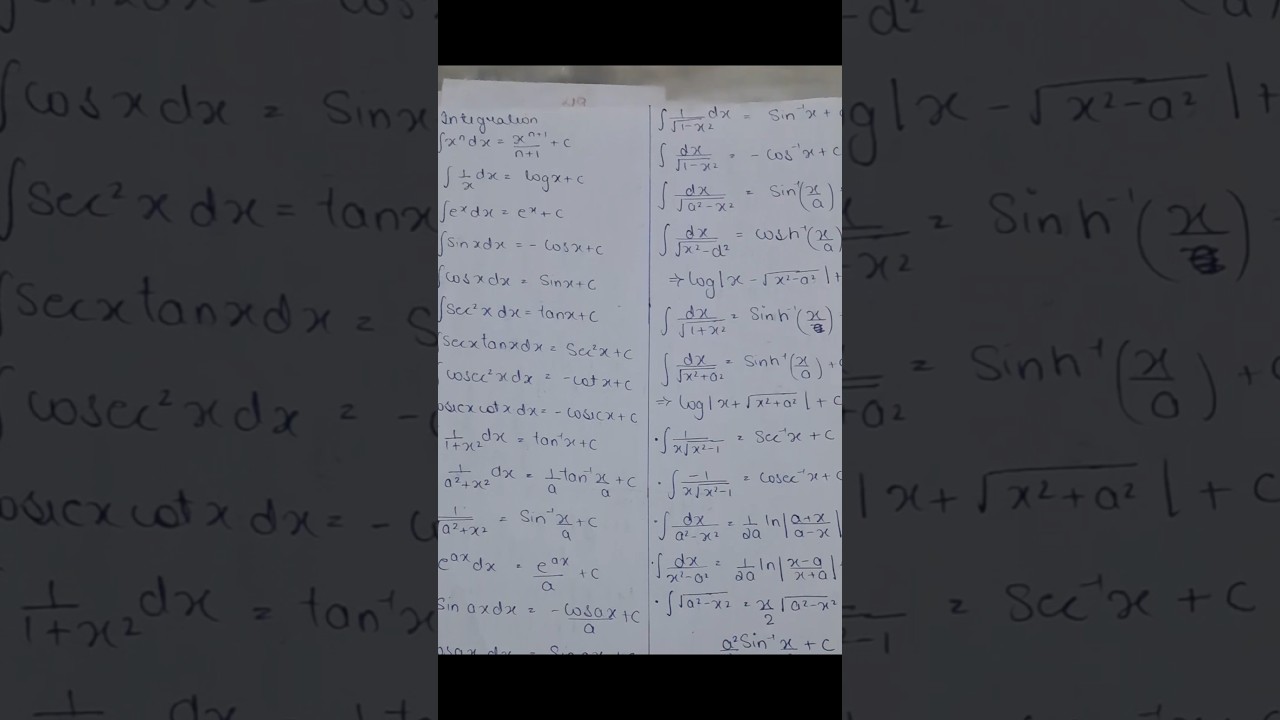 Integration
∫xⁿdx = xⁿ⁺¹/n+1 + C
∫ 1/x dx = logx+C
∫eˣdx = eˣ+C
∫sinxdx = - cosx+C
∫cosxdx = Sinx+C
∫Sec²xdx = tanx+C
∫Secxtanxdx = Sec²x+C
∫cosec²xdx = -cotx+C
cosecx cotxdx = - cosecx+C
1/1+x² dx = tan⁻¹x+C
1/a²+x² dx = 1/a tan⁻¹ x/a + C
1/√a²+x² = Sin⁻¹ x/a + C
eᵃˣdx = eᵃˣ/a + C
Sin axdx = -cosax/a + C
∫ 1/√1-x² dx = Sin⁻¹x +
∫ dx/√1-x² = - cos⁻¹x + C
∫ dx/√a²-x² = Sin⁻¹(x/a)
∫ dx/√x²-d² = cosh⁻¹(x/a)
⇒ log|x - √x²-a² | +
∫ dx/√1+x² = Sinh⁻¹(x/)
∫ dx/√x²+a² = Sinh⁻¹(x/a) +
⇒ log|x+√x²+a² | + C
· ∫ 1/x√x²-1 = Sec⁻¹x + C
· ∫ -1/x√x²-1 = cosec⁻¹x + C
· ∫ dx/a²-x² = 1/2a ln|a+x/a-x|
· ∫ dx/x²-a² = 1/2a ln|x-a/x+a|
· ∫√a²-x² = x/2 √a²-x²
a²Sin⁻¹x + C